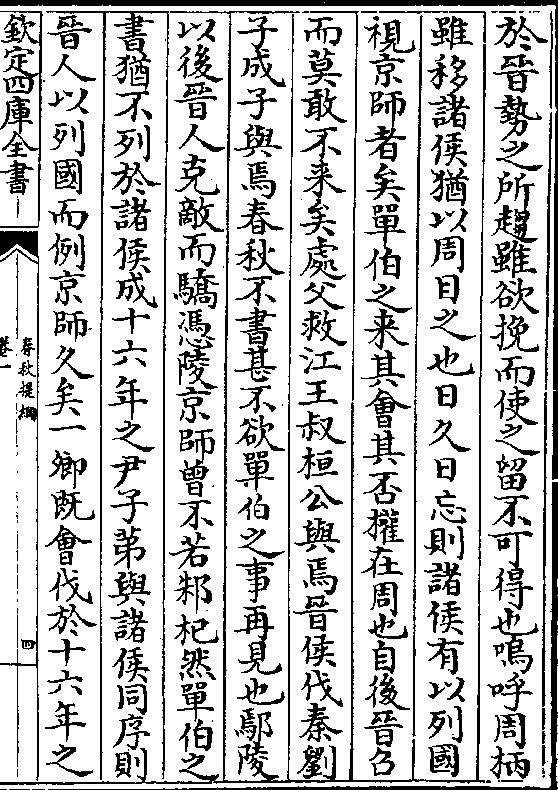 於晉勢之所趨雖欲挽而使之留不可得也嗚呼周柄
雖移諸侯猶以周目之也日久日忘則諸侯有以列國
視京師者矣單伯之来其會其否權在周也自後晉召
而莫敢不来矣處父救江王叔桓公與焉晉侯伐秦劉
子成子與焉春秋不書甚不欲單伯之事再見也鄢陵
以後晉人克敵而驕憑陵京師曾不若邾杞然單伯之
書猶不列於諸侯成十六年之尹子苐與諸侯同序則
晉人以列國而例京師久矣一卿既會伐於十六年之
欽定四庫全書
春秋提綱
卷一
四